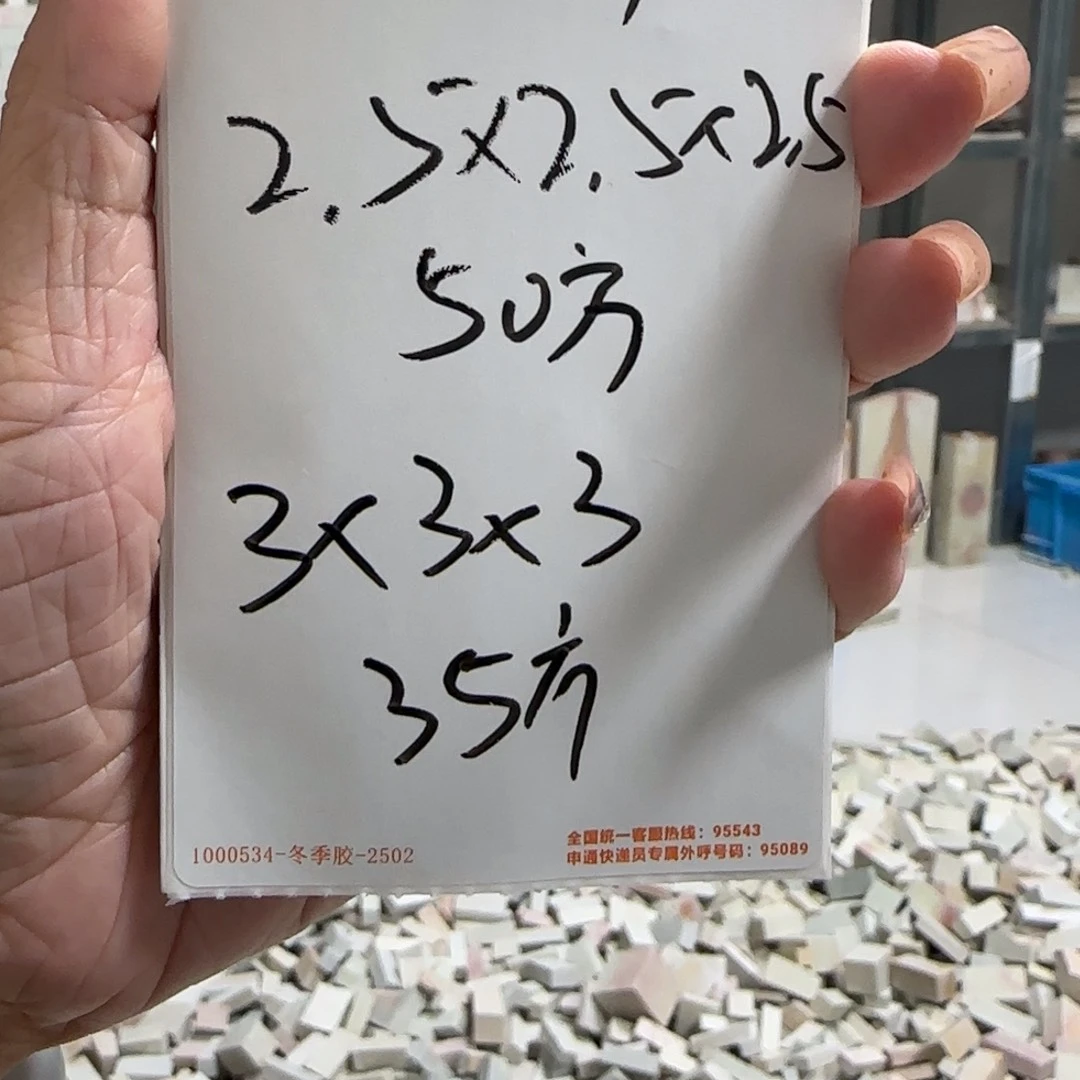 2.5×2.5×2.5
50方
3×3×3
35方
1000534-冬季胶-2502
全国统一客服热线：95543
申通快递员专属外呼号码：95089